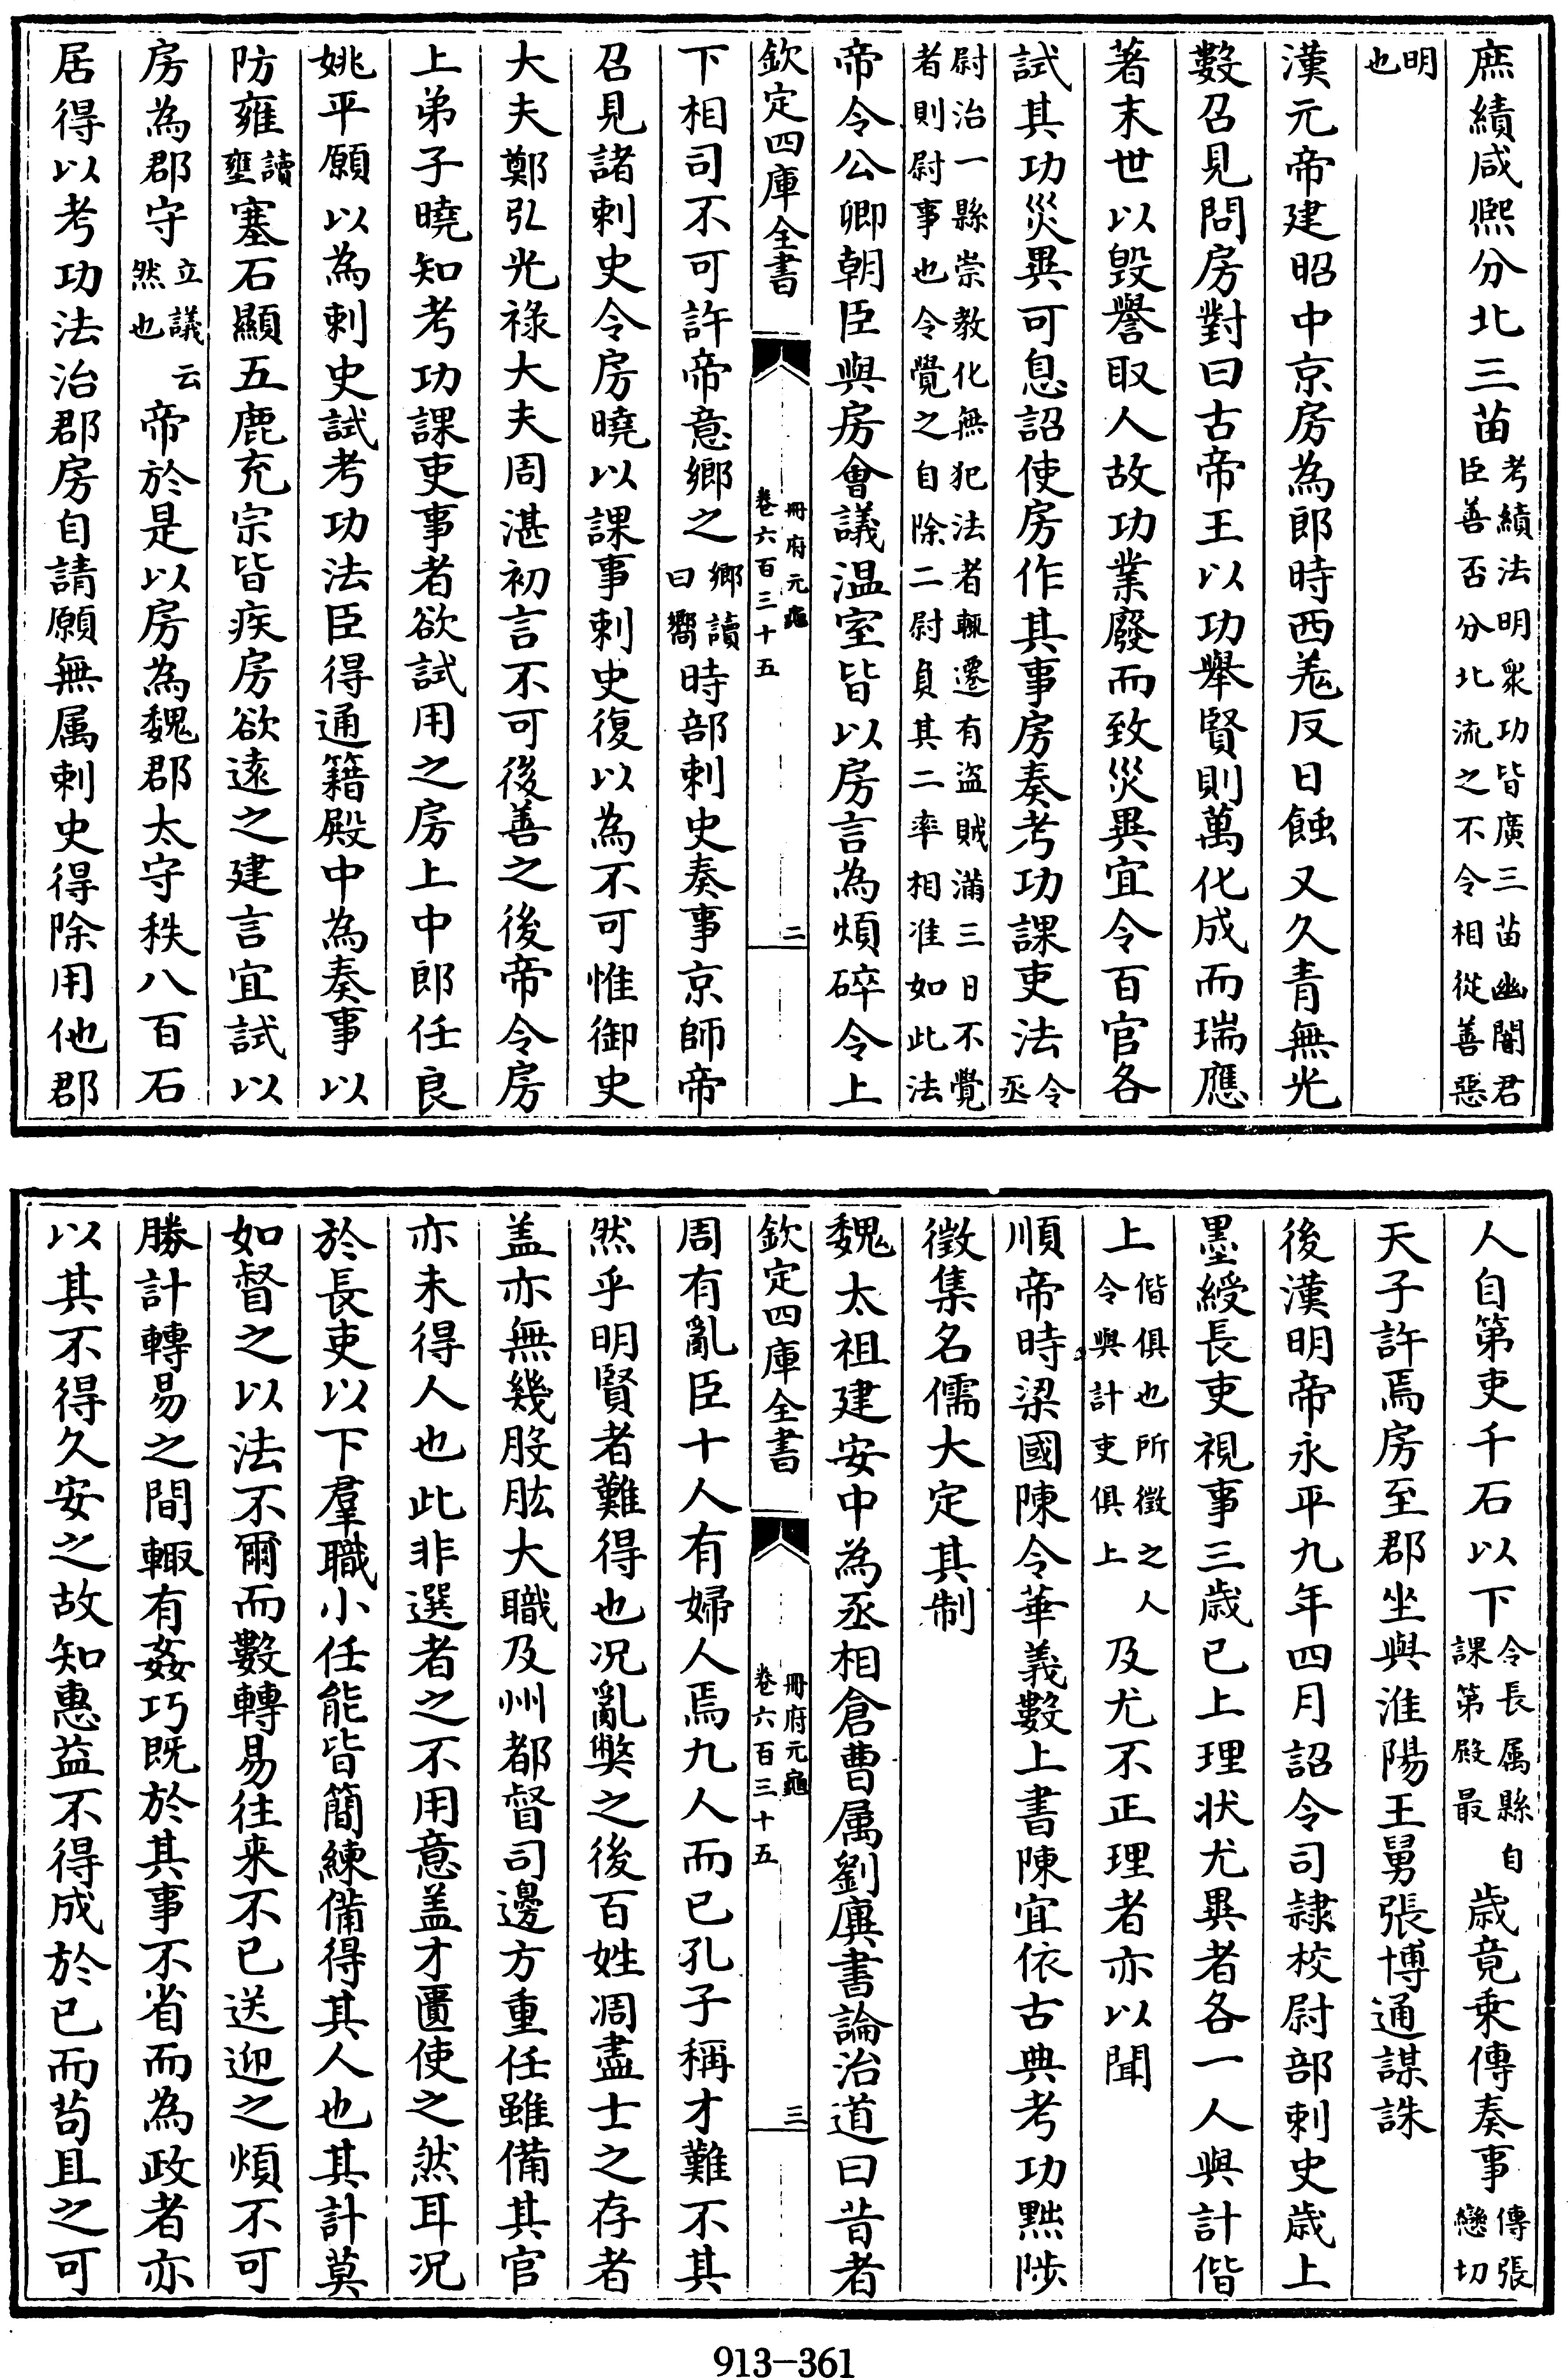 庶績咸熈分北三苗考績法明衆功皆廣三苗幽闇君臣善否分北流之不令相從善惡
明也
漢元帝建昭中京房為郎時西羗反日蝕又久青無光
數召見問房對曰古帝王以功舉賢則萬化成而瑞應
著末世以毁譽取人故功業廢而致災異宜令百官各
試其功災異可息詔使房作其事房奏考功課吏法令丞
尉治一縣崇教化無犯法者輒遷有盜賊滿三日不覺者則尉事也令覺之自除二尉負其二率相准如此法
帝令公卿朝臣與房會議温室皆以房言為煩碎令上
欽定四庫全書
冊府元龜
卷六百三十五
二
下相司不可許帝意鄉之鄉讀曰嚮時部刺史奏事京師帝
召見諸刺史令房曉以課事刺史復以為不可惟御史
大夫鄭弘光祿大夫周湛初言不可後善之後帝令房
上弟子曉知考功課吏事者欲試用之房上中郎任良
姚平願以為刺史試考功法臣得通籍殿中為奏事以
防雍讀壅塞石顯五鹿充宗皆疾房欲遠之建言宜試以
房為郡守立議云然也帝於是以房為魏郡太守秩八百石
居得以考功法治郡房自請願無属刺史得除用他郡
人自第吏千石以下令長属縣自課第殿最歳竟乘傳奏事傳張戀切
天子許焉房至郡坐與淮陽王舅張博通謀誅
後漢明帝永平九年四月詔令司隷校尉部刺史歳上
墨綬長吏視事三歳已上理状尤異者各一人與計偕
上偕俱也所徵之人令與計吏俱上及尤不正理者亦以聞
順帝時梁國陳令華義數上書陳宜依古典考功黜陟
徵集名儒大定其制
魏太祖建安中為丞相倉曹属劉廙書論治道曰昔者
欽定四庫全書
冊府元龜
卷六百三十五
三
周有亂臣十人有婦人焉九人而已孔子稱才難不其
然乎明賢者難得也况亂弊之後百姓凋盡士之存者
盖亦無幾股肱大職及州都督司邊方重任雖備其官
亦未得人也此非選者之不用意盖才匱使之然耳况
於長吏以下羣職小任能皆簡練備得其人也其計莫
如督之以法不爾而數轉易往来不已送迎之煩不可
勝計轉易之間輙有姦巧既於其事不省而為政者亦
以其不得久安之故知惠益不得成於已而苟且之可
913-361